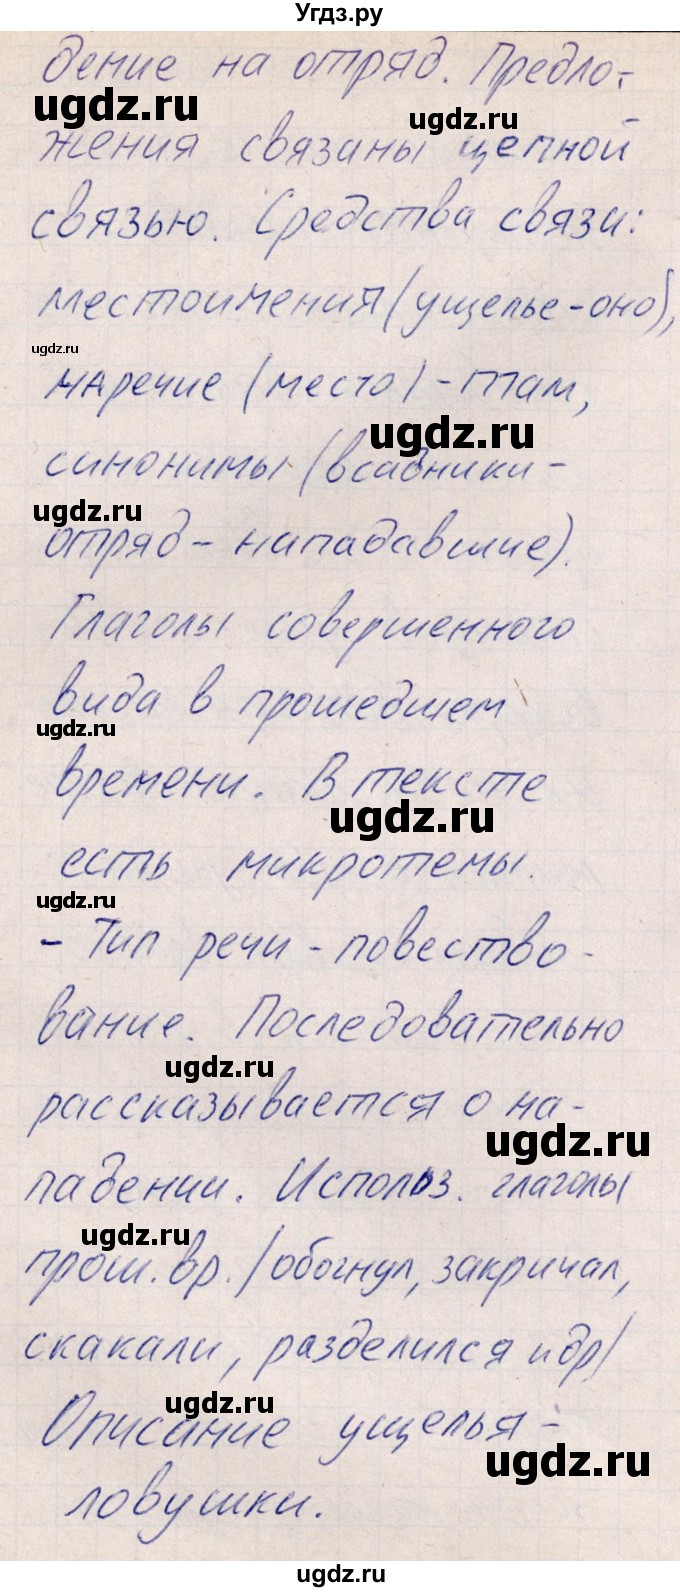 Угдз.ру
дение на отряд. Предло-
жения связаны цепной
связью. Средства связи:
местоимения (ущелье-оно),
наречие (место) - там,
синонимы (всадники-
отряд - нападавшие).
Глаголы совершенного
вида в прошедшем
времени. В тексте
есть микротемы.
- Тип речи - повество-
вание. Последовательно
рассказывается о на-
падении. Использ. глаголы
прош. вр. /обогнул, закричал,
скакали, разделился и др/
Описание ущелья-
ловушки.
ugdz.ru
ugdz.ru
ugdz.ru
ugdz.ru
ugdz.ru
ugdz.ru
ugdz.ru
ugdz.ru
ugdz.ru
ugdz.ru
ugdz.ru
ugdz.ru
ugdz.ru
ugdz.ru